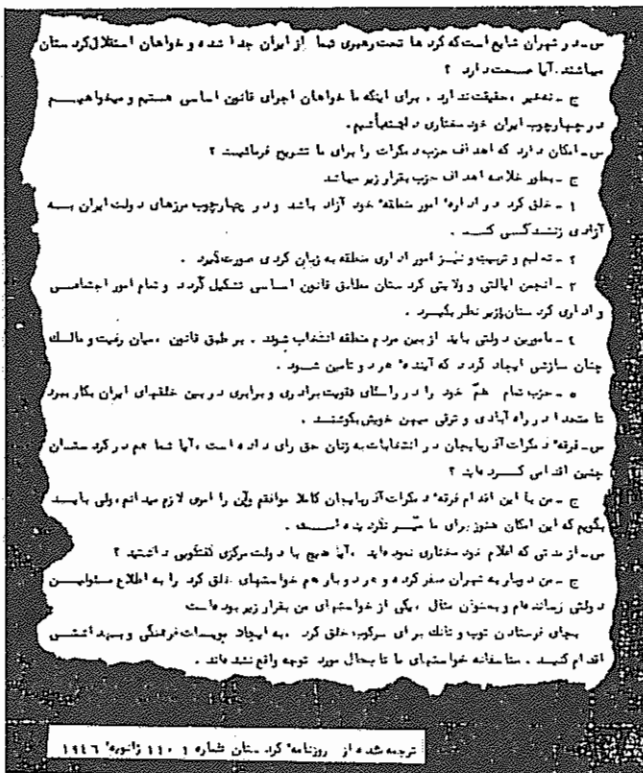 س ـ در تهران شایع است که کرد ها تحت رهبری شما از ایران جدا شده و خواهان استقلال کردستان
میباشند. آیا صحت دارد ؟
ج ـ نخیر ، حقیقت ندارد . برای اینکه ما خواهان اجرای قانون اساسی هستیم و میخواهیم
در چهارچوب ایران خود مختاری داشته باشیم.
س ـ امکان دارد که اهداف حزب دمکرات را برای ما تشریح فرمائید ؟
ج ـ بطور خلاصه اهداف حزب بقرار زیر میباشد
۱ ـ خلق کرد در ادارهٔ امور منطقهٔ خود آزاد باشد و در چهارچوب مرزهای دولت ایران به
آزادی زندگی کند .
۲ ـ تعلیم و تربیت و نیز امور اداری منطقه به زبان کردی صورت گیرد .
۳ ـ انجمن ایالتی و ولایتی کردستان مطابق قانون اساسی تشکیل گردد و تمام امور اجتماعی
و اداری کردستان را زیر نظر بگیرد .
٤ ـ مامورین دولتی باید از بین مردم منطقه انتخاب شوند . بر طبق قانون ، میان رعیت و مالک
چنان سازشی ایجاد گردد که آیندهٔ هر دو تامین شود .
٥ ـ حزب تمام همّ خود را در راستای تقویت برادری و برابری در بین خلقهای ایران بکار ببرد
تا متحدا در راه آبادی و ترقی میهن خویش بکوشند .
س ـ فرقهٔ دمکرات آذربایجان در انتخابات به زنان حق رای داده است ، آیا شما هم در کردستان
چنین اقدامی کرده اید ؟
ج ـ من با این اقدام فرقهٔ دمکرات آذربایجان کاملا موافقم و آن را امری لازم میدانم ، ولی باید
بگویم که این امکان هنوز برای ما میّسر نگردیده است .
س ـ از مدتی که اعلام خود مختاری نموده اید ، آیا هیچ با دولت مرکزی گفتگویی داشتید ؟
ج ـ من دوبار به تهران سفر کرده و هر دو بار هم خواستهای خلق کرد را به اطلاع مسئولین
دولتی رسانده ام و بعنوان مثال ، یکی از خواستهای من بقرار زیر بوده است
بجای فرستادن توپ و تانک برای سرکوب خلق کرد ، به ایجاد موسسات فرهنگی و بهداشتی
اقدام کنید . متاسفانه خواستهای ما تا بحال مورد توجه واقع نشده اند .
ترجمه شده از روزنامهٔ کردستان شماره ۱ ، ۱۱ ژانویهٔ ۱۹٤٦